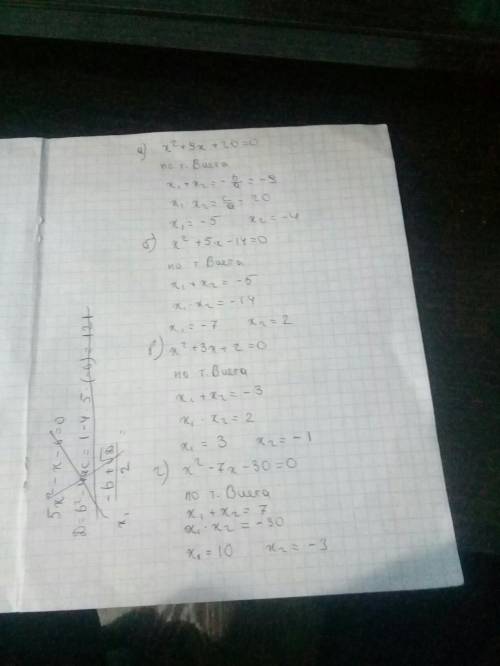 а) x² + 9x + 20 = 0
по т. Виета
x₁ + x₂ = -b/a = -9
x₁ x₂ = c/a = 20
x₁ = -5 x₂ = -4
б) x² + 5x - 14 = 0
по т. Виета
x₁ + x₂ = -5
x₁ · x₂ = -14
x₁ = -7 x₂ = 2
в) x² + 3x + 2 = 0
по т. Виета
x₁ + x₂ = -3
x₁ · x₂ = 2
x₁ = 3 x₂ = -1
г) x² - 7x - 30 = 0
по т. Виета
x₁ + x₂ = 7
x₁ · x₂ = -30
x₁ = 10 x₂ = -3
5x² - x - 6 = 0
D = b² - 4ac = 1 - 4 · 5 · (-6) = 121
x₁ = (-b + √D)/2 =